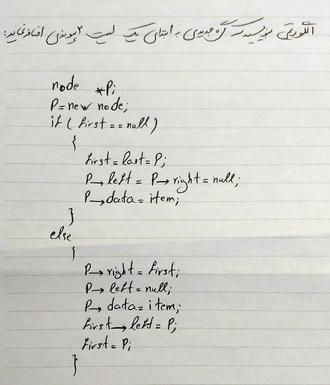 الگوریتمی بنویسید که گره جدیدی به ابتدای یک لیست ۲پیوندی اضافه نماید:
node *P;
P=new node;
if (first==null)
{
first=last=P;
P→left=P→right=null;
P→data=item;
}
else
{
P→right=first;
P→left=null;
P→data=item;
first→left=P;
first=P;
}